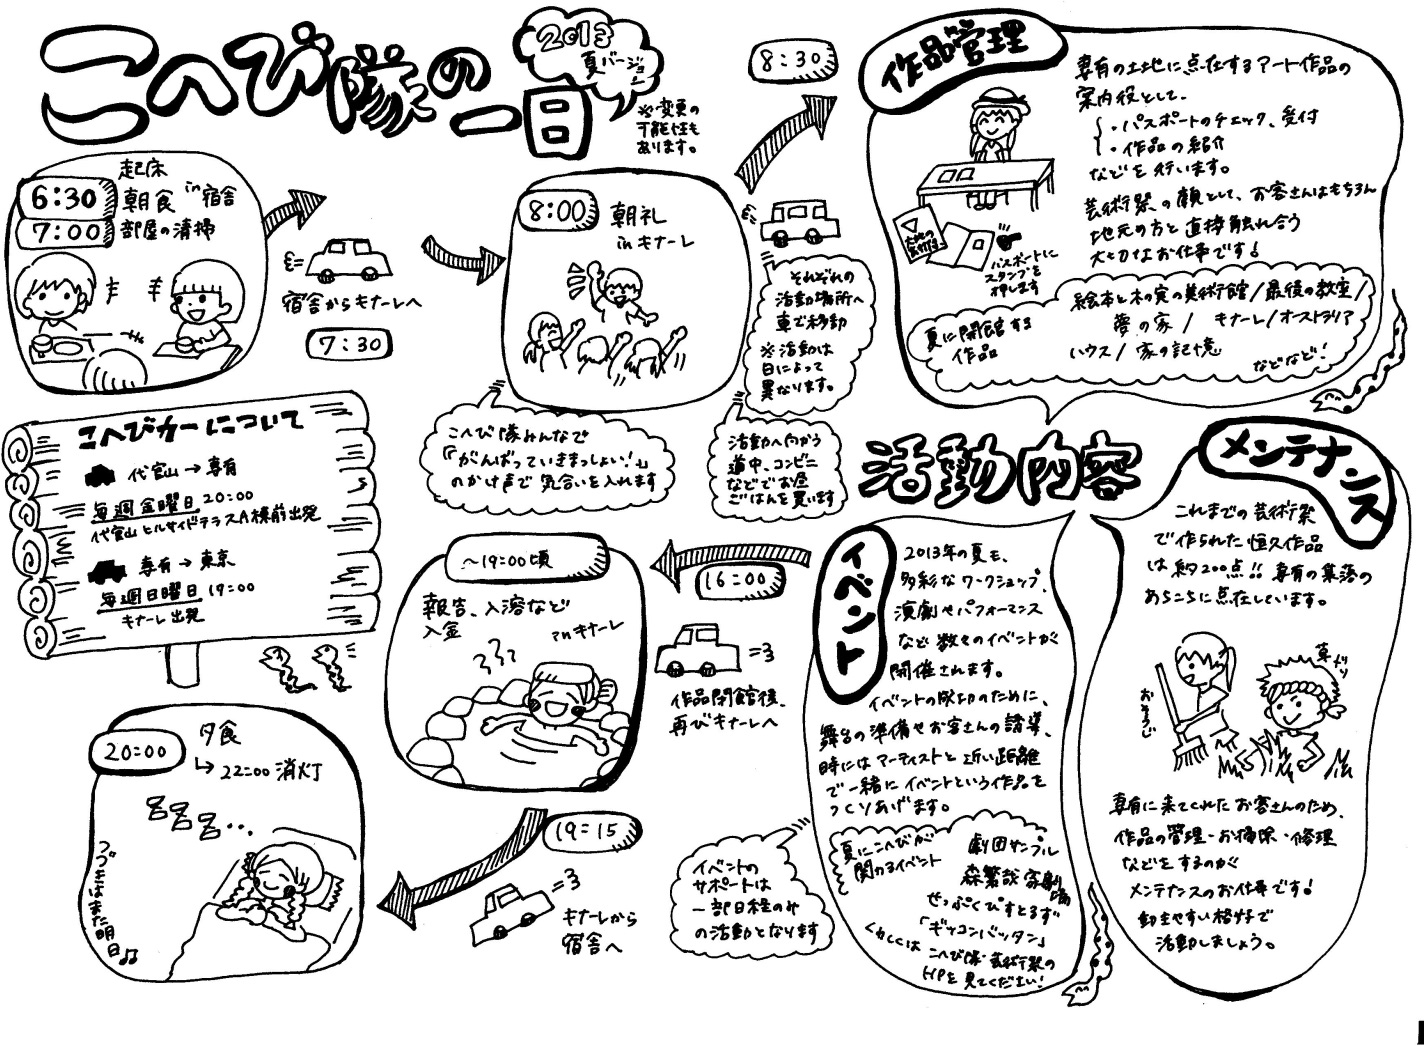 こへび隊の一日
2013
夏バージョン
※変更の
可能性も
あります。
6:30
起床
朝食
in 宿舎
7:00
部屋の清掃
宿舎からキナーレへ
7:30
8:00
朝礼
in キナーレ
こへび隊みんなで
「がんばっていきまっしょい!」
のかけ声で気合いを入れます
8:30
それぞれの
活動場所へ
車で移動
※活動は
日によって
異なります。
活動へ向かう
道中、コンビニ
などでお昼
ごはんを買います
作品管理
専有の土地に点在するアート作品の
案内役として、
・パスポートのチェック、受付
・作品の紹介
などを行います。
芸術祭の顔として、お客さんはもちろん
地元の方と直接触れ合う
大切なお仕事です!
パスポートに
スタンプを
押します
夏に開館する
作品
絵本と木の実の美術館/最後の教室/
夢の家/キナーレ/オーストラリア
ハウス/家の記憶
などなど!
活動内容
メンテナンス
これまでの芸術祭
で作られた恒久作品
は約200点!!専有の集落の
あちこちに点在しています。
おそうじ
草
専有に来てくれたお客さんのため、
作品の管理・お掃除・修理
などをするのが
メンテナンスのお仕事です!
動きやすい格好で
活動しましょう。
イベント
2013年の夏も、
多彩なワークショップ、
演劇やパフォーマンス
など数々のイベントが
開催されます。
イベントの成功のために、
舞台の準備やお客さんの誘導、
時にはアーティストと近い距離
で一緒にイベントという作品を
つくりあげます。
夏にこへびが
関わるイベント
劇団サンプル
森繁哉 客劇場
ぜっぷくぴすとるず
「ギッコンバッタン」
くわしくは こへび隊・芸術祭の
HPを見てください!
イベントの
サポートは
一部日程のみ
の活動となります
16:00
作品閉館後、
再びキナーレへ
～19:00頃
報告、入浴など
入金
in キナーレ
19:15
キナーレから
宿舎へ
20:00
夕食
↳22:00 消灯
呂呂呂…
つづきはまた明日♫
こへびカーについて
代官山→専有
毎週金曜日 20:00
代官山ヒルサイドテラスA棟前出発
専有→東京
毎週日曜日 19:00
キナーレ出発